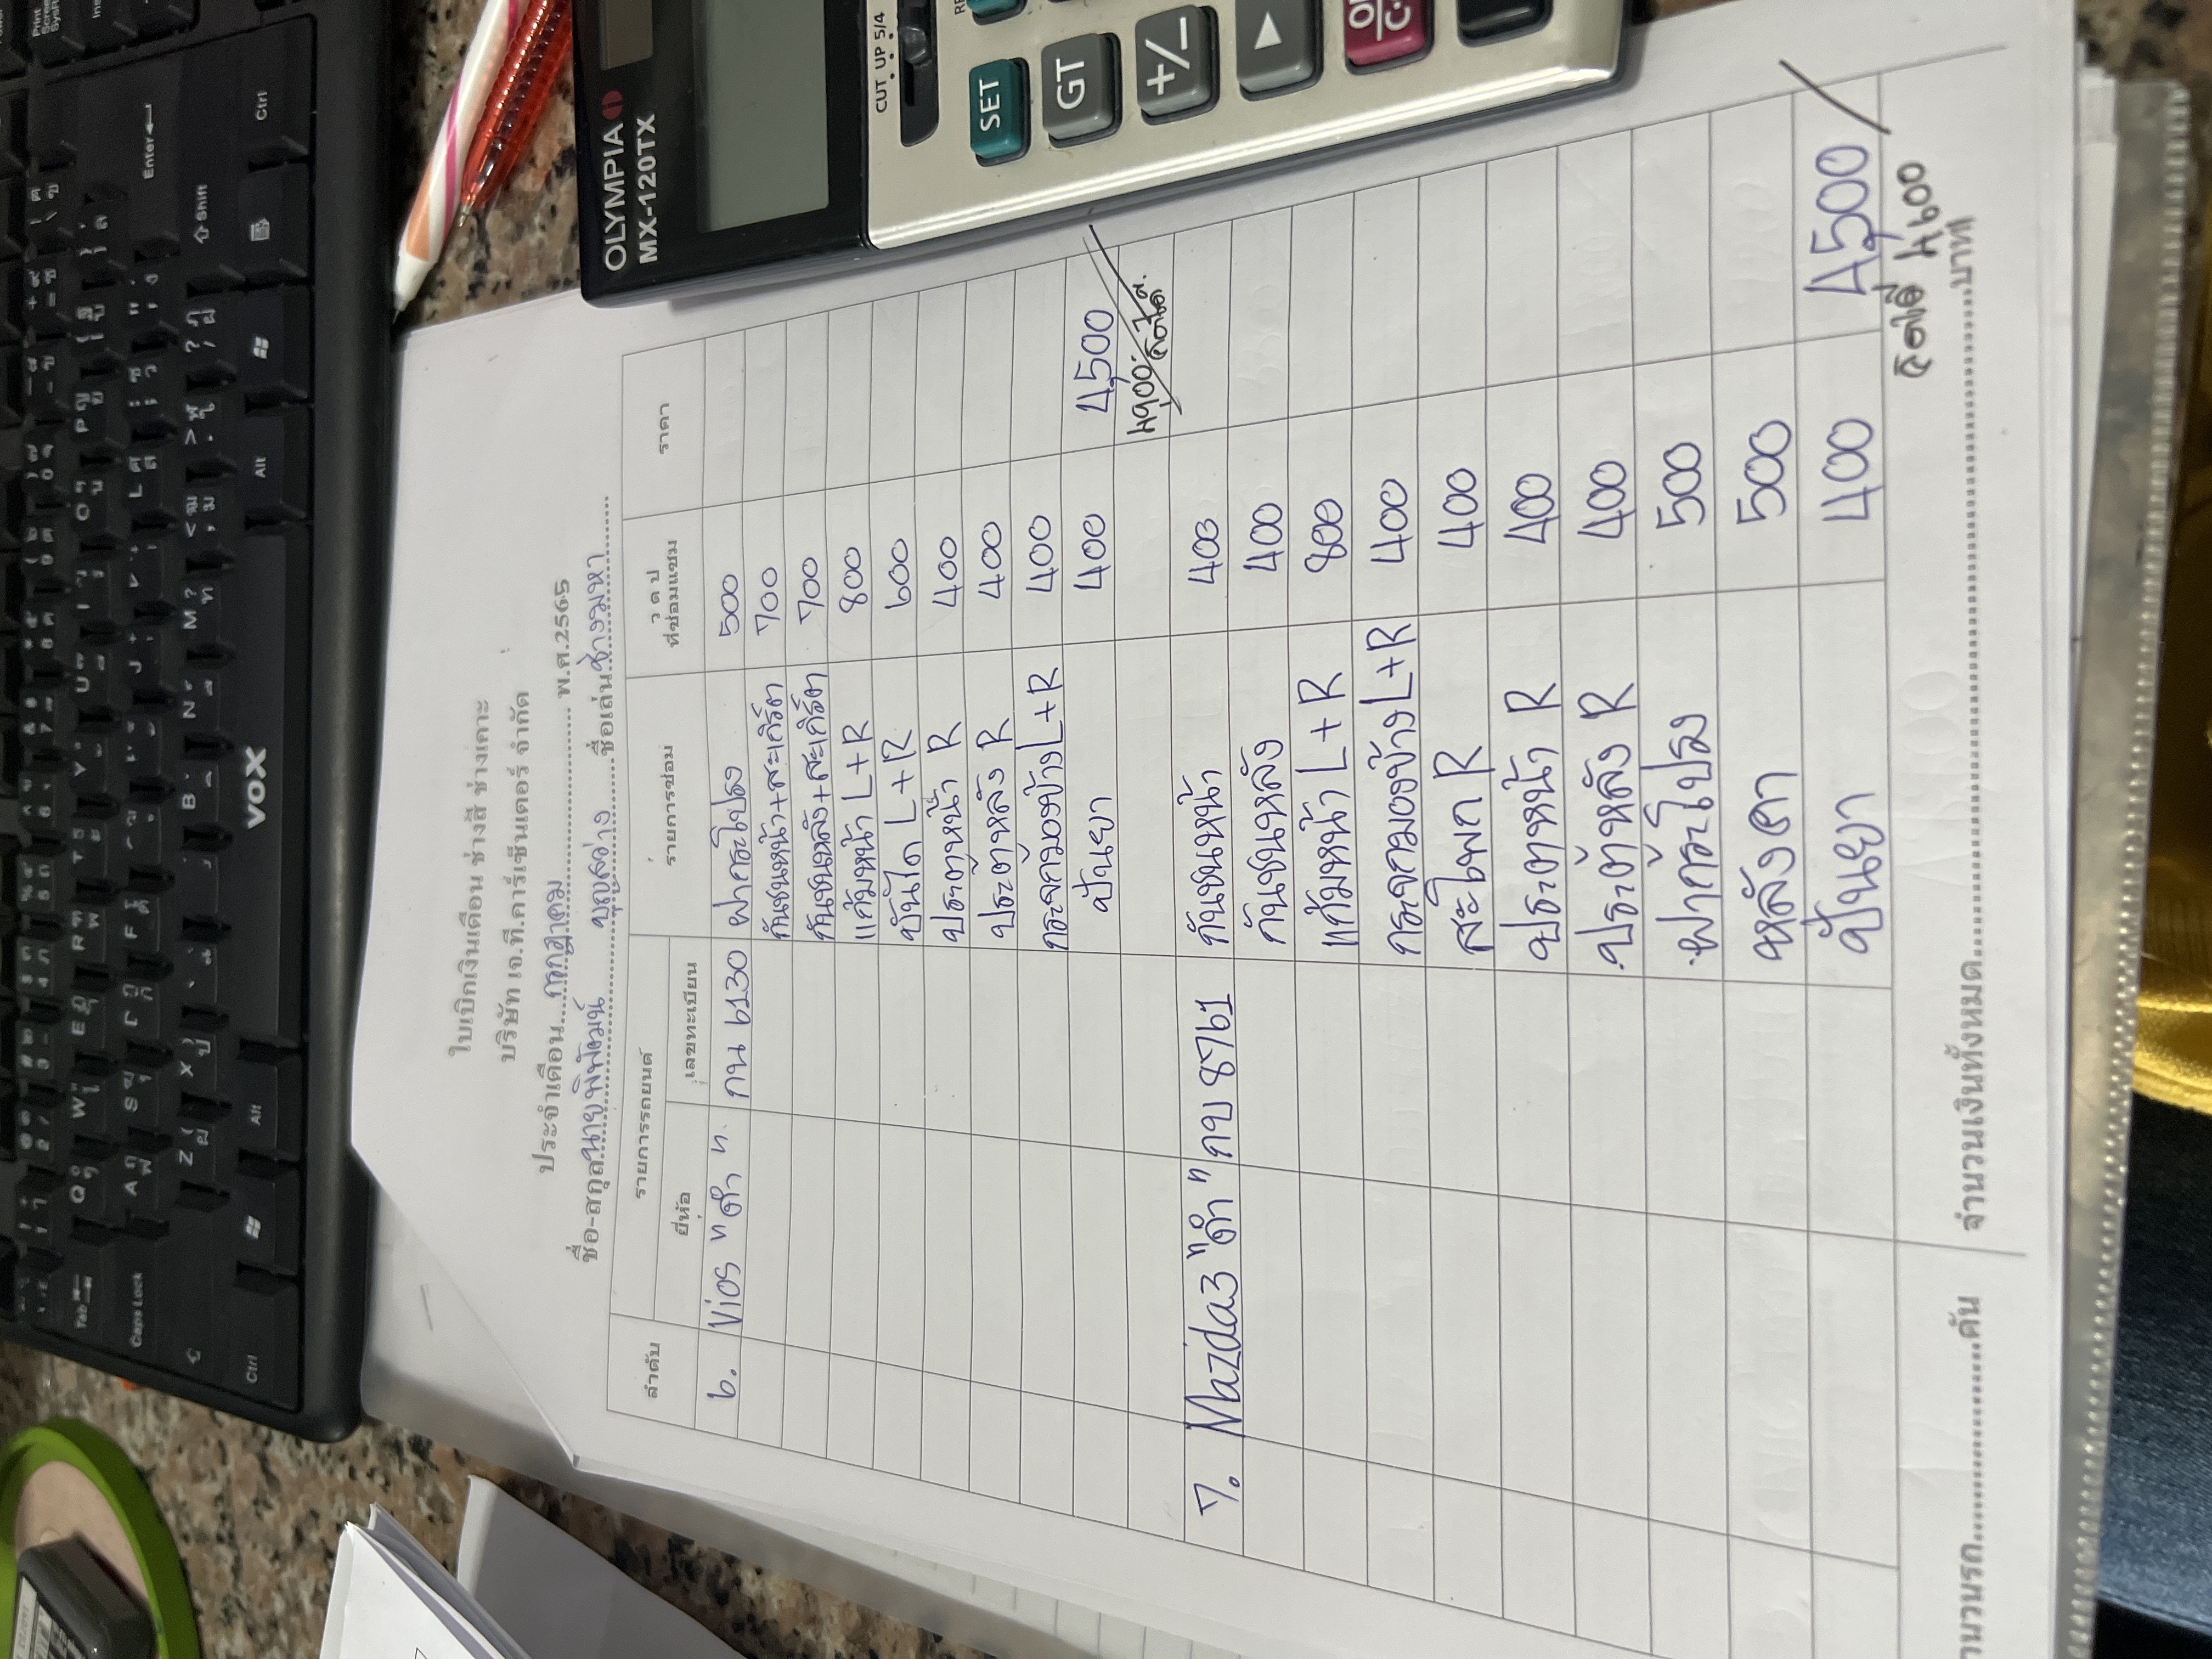 ใบเบิกเงินเดือน ช่างสี ช่างเกาะ
บริษัท เจ.ที.คาร์เซ็นเตอร์ จำกัด
ประจำเดือน....กรกฎาคม.... พ.ศ.2565
ชื่อ-สกุล นายพิพัฒน์ บุญสว่าง ชื่อเล่น ช่างมหา
ลำดับ รายการรถยนต์ รายการซ่อม ว ด ป ที่ซ่อมแซม ราคา
ยี่ห้อ เลขทะเบียน
6. Vios "ดำ" กน 6130 ฝากระโปรง 500
กันชนหน้า+สะเกิร์ต 700
กันชนหลัง+สะเกิร์ต 700
แก้มหน้า L+R 800
บันได L+R 600
ประตูหน้า R 400
ประตูหลัง R 400
กระจกมองข้าง L+R 400
ปั่นยา 400 4,500
4900
7. Mazda3 "ดำ" กบ 8761 กันชนหน้า 400
กันชนหลัง 400
แก้มหน้า L+R 800
กระจกมองข้าง L+R 400
สะโพก R 400
ประตูหน้า R 400
ประตูหลัง R 400
ฝากระโปรง 500
หลังคา 500
ปั่นยา 400 4,500
4600
จำนวนรถ....คัน จำนวนเงินทั้งหมด....บาท
OLYMPIA
MX-120TX
CUT UP 5/4
SET
GT
+/-
▶
VOX
Enter
Shift
Ctrl
Alt
Tab
Caps Lock